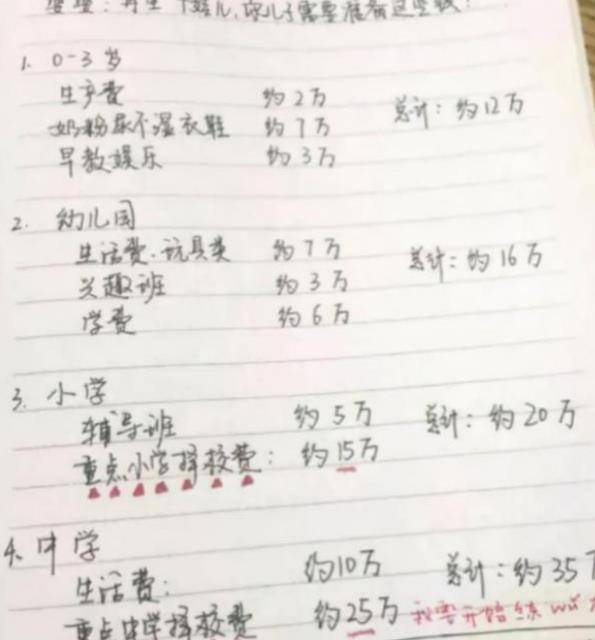 婆婆：再生一个娃儿，你儿子需要准备这些钱！
1. 0-3岁
生产费 约2万 总计：约12万
奶粉尿不湿衣鞋 约7万
早教娱乐 约3万
2. 幼儿园
生活费、玩具类 约7万 总计：约16万
兴趣班 约3万
学费 约6万
3. 小学
辅导班 约5万 总计：约20万
重点小学择校费： 约15万
4. 中学
生活费： 约10万 总计：约35
重点中学择校费 约25万 我要开始练